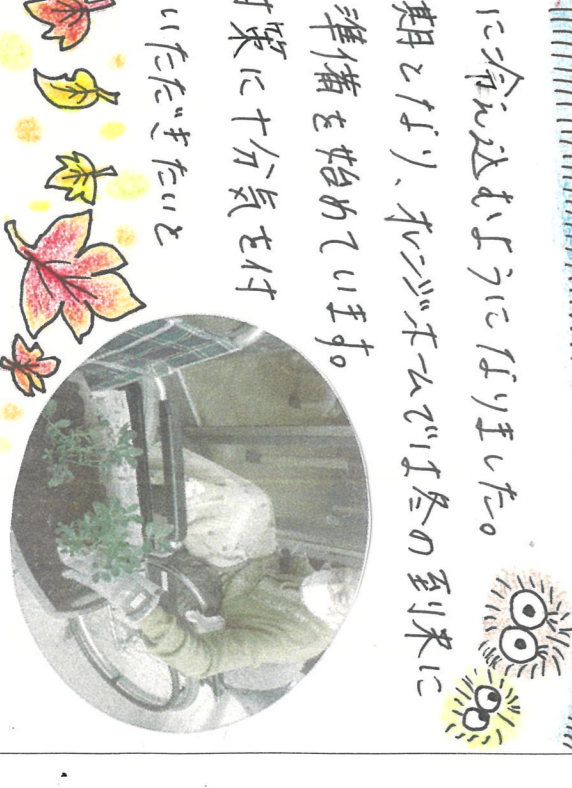 に冷え込むようになりました。
期となり、オレンジホームでは冬の到来に
準備を始めています。
対策に十分気を付
いただきたいと